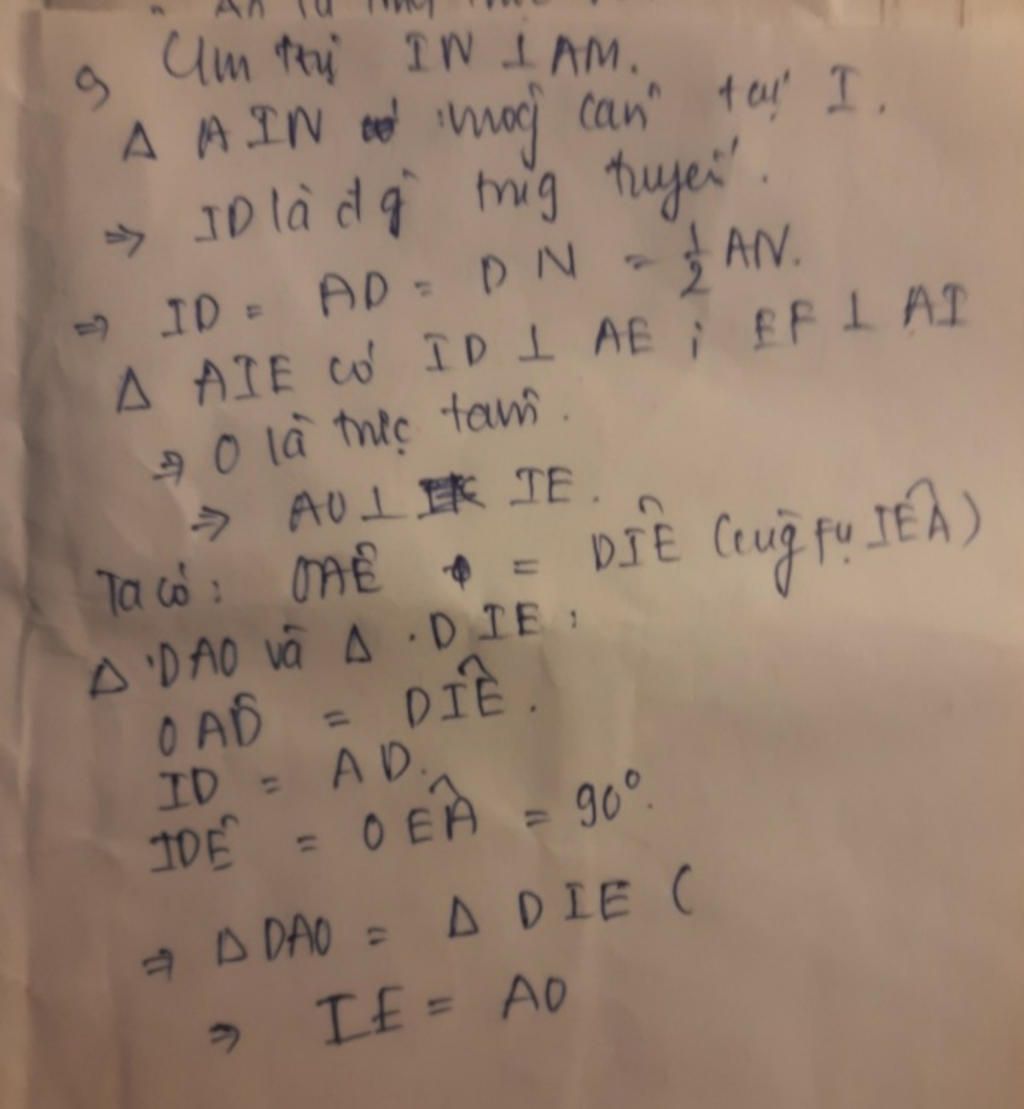 Cm tự IN ⊥ AM.
Δ AIN vuông cân tại I.
⇒ ID là đg trug tuyến.
⇒ ID = AD = DN = 1/2 AN.
Δ AIE có ID ⊥ AE ; EF ⊥ AI
⇒ O là trực tâm.
⇒ AO ⊥ IE.
Ta có: OAÊ = DIÊ (cùg fụ IEÂ)
Δ DAO và Δ DIE:
OAD̂ = DIÊ.
ID = AD.
IDÊ = OEÂ = 90°.
⇒ Δ DAO = Δ DIE (
⇒ IE = AO